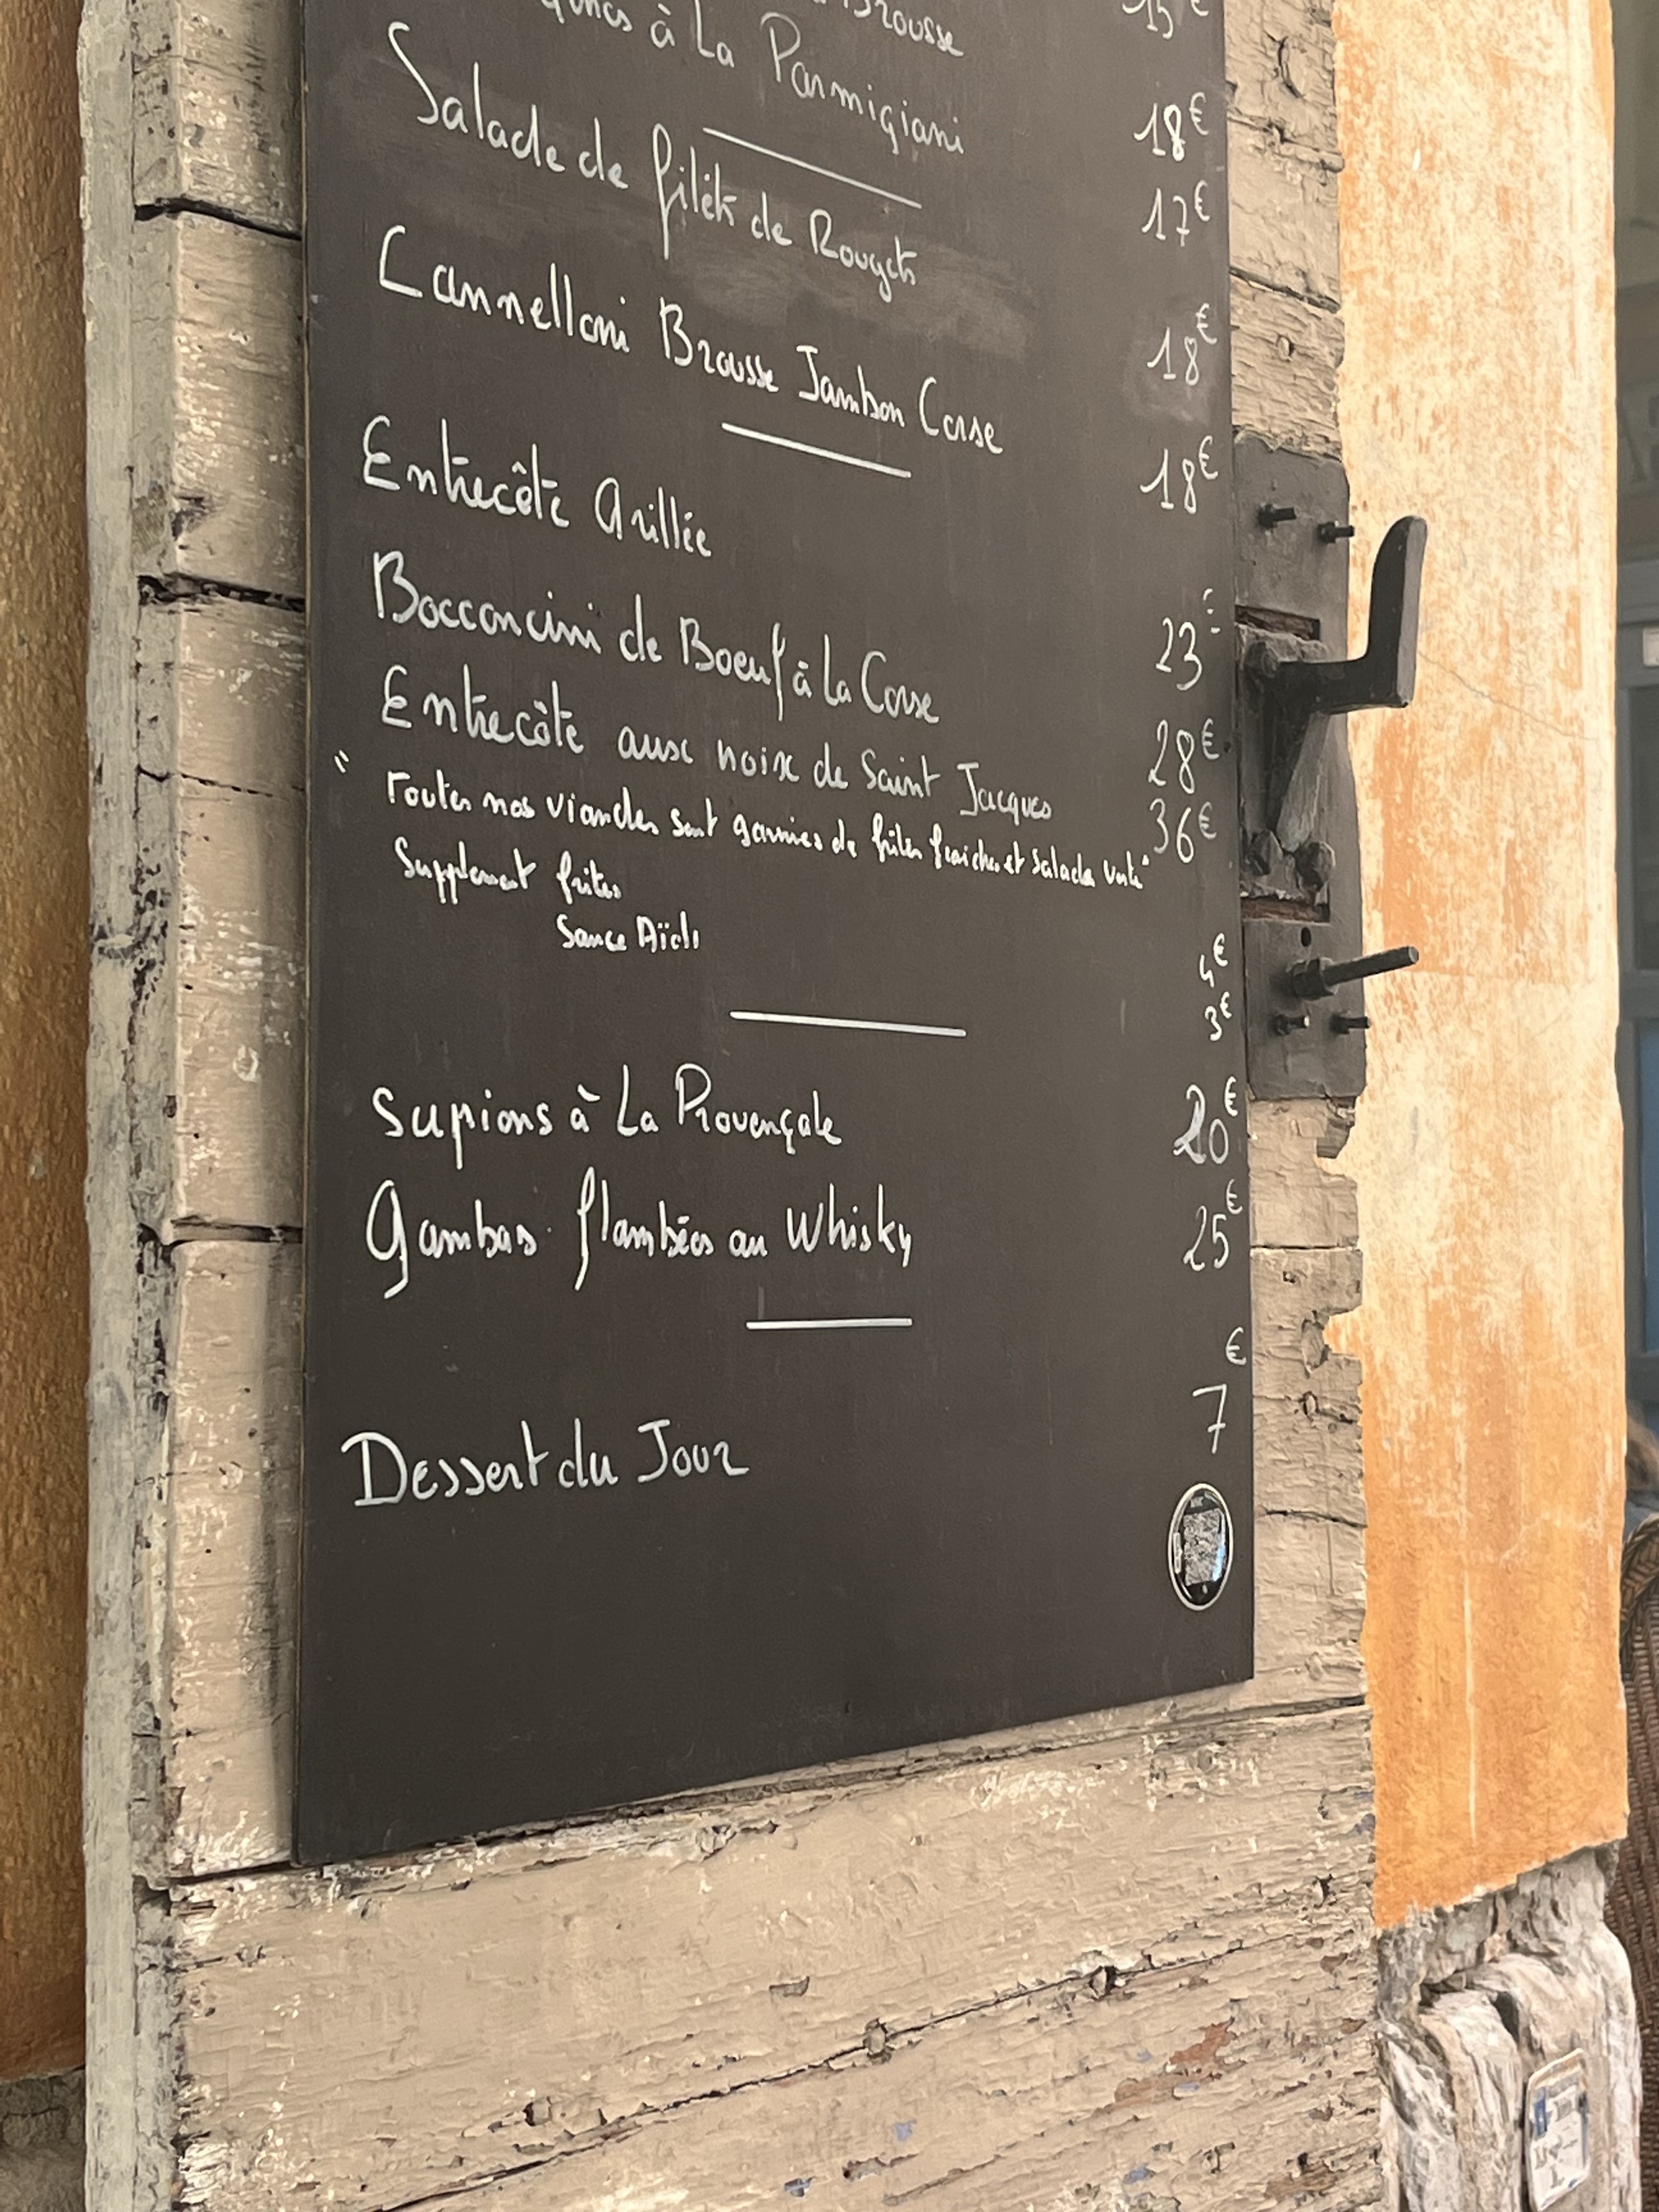 Brousse 15€
à La Parmigiani 18€
Salade de filèts de Rougets 17€
Cannelloni Brousse Jambon Corse 18€
18€
Entrecôte Grillée 23€
Bocconcini de Boeuf à La Corse 28€
Entrecôte aux noix de Saint Jacques 36€
"Toutes nos viandes sont garnies de frites fraiches et Salade verte"
Supplement frites 4€
Sauce Aïoli 3€
Supions à La Provençale 20€
Gambas flambées au Whisky 25€
Dessert du Jour 7€